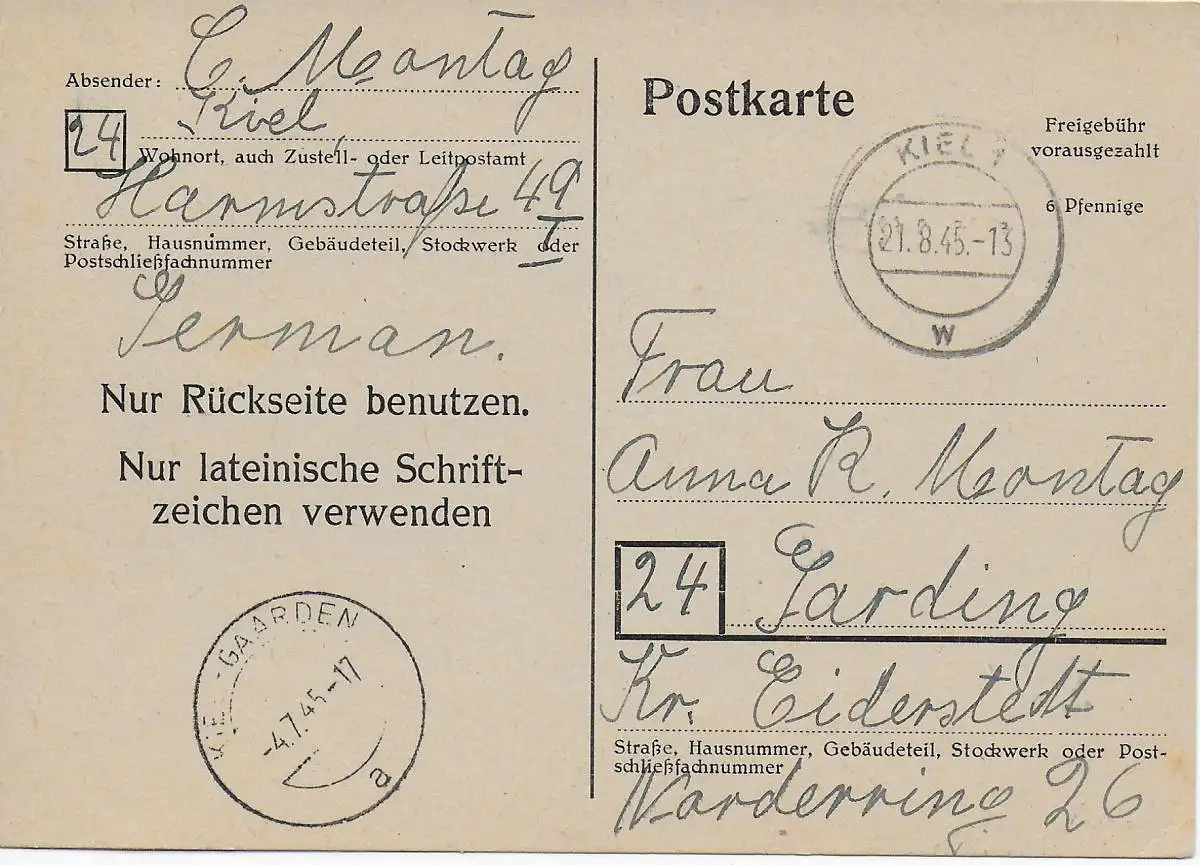 Absender: C. Montag
24 Kiel,
Wohnort, auch Zustell- oder Leitpostamt
Harmstraße 49 I
Straße, Hausnummer, Gebäudeteil, Stockwerk oder
Postschließfachnummer
German.
Nur Rückseite benutzen.
Nur lateinische Schrift-
zeichen verwenden
KIEL-GAARDEN
-4.7.45.-17
a
Postkarte
Freigebühr
vorausgezahlt
6 Pfennige
KIEL 1
21.8.45.-13
W
Frau
Anna R. Montag
24 Garding
Kr. Eiderstedt
Straße, Hausnummer, Gebäudeteil, Stockwerk oder Post-
schließfachnummer
Norderring 26